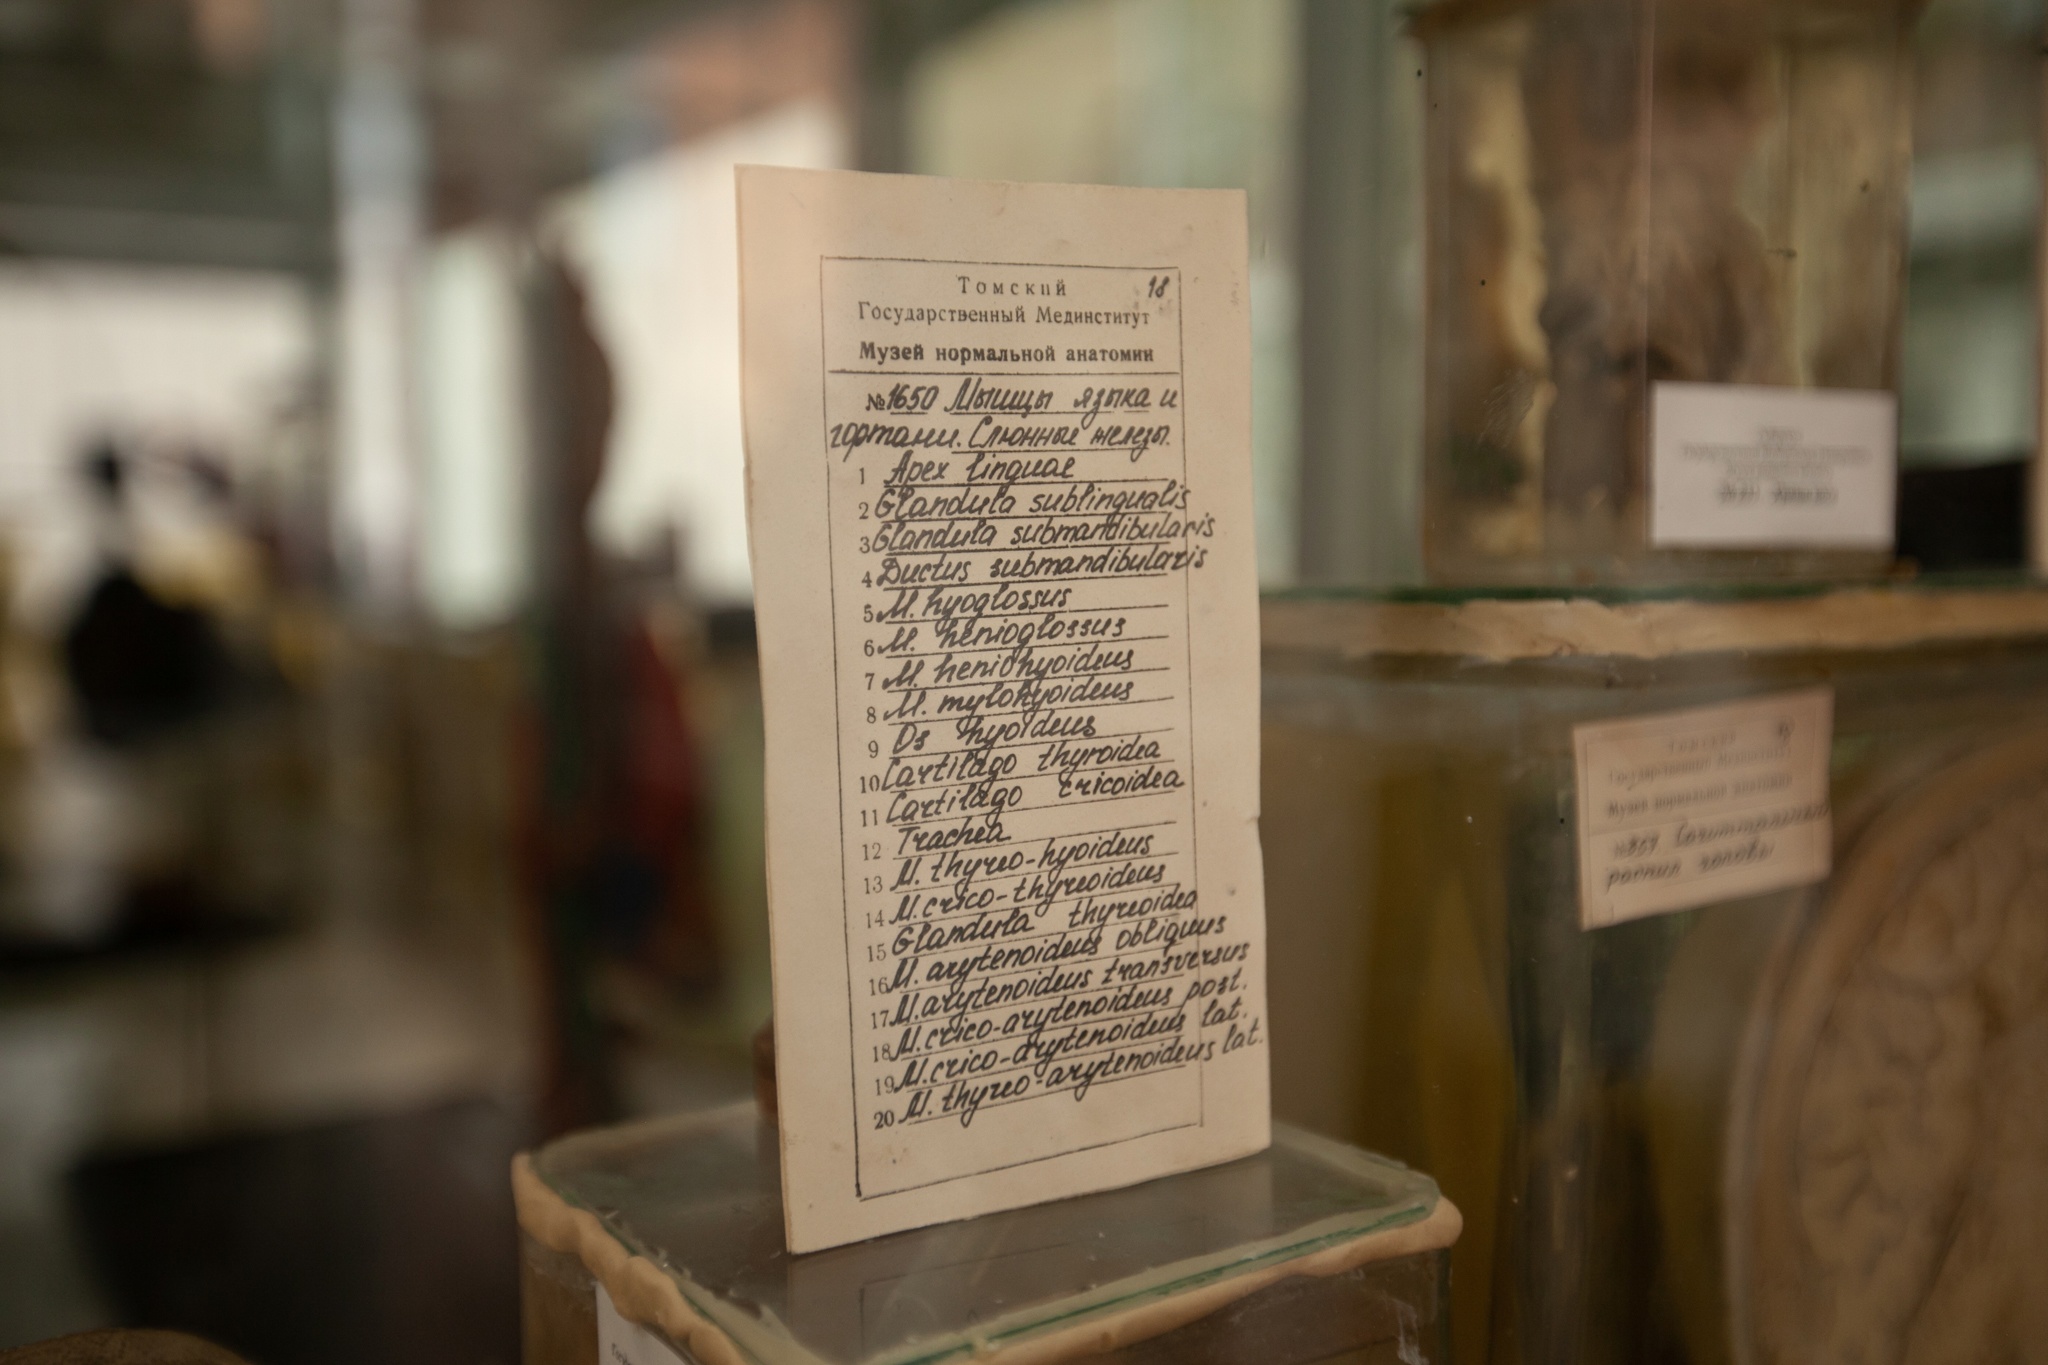 Томский 18
Государственный Мединститут
Музей нормальной анатомии
№1650 Мышцы языка и
гортани. Слюнные железы.
1 Apex linguae
2 Glandula sublingualis
3 Glandula submandibularis
4 Ductus submandibularis
5 M. hyoglossus
6 M. henioglossus
7 M. heniohyoideus
8 M. mylohyoideus
9 Os hyoideus
10 Cartilago thyroidea
11 Cartilago cricoidea
12 Trachea
13 M. thyreo-hyoideus
14 M. crico-thyreoideus
15 Glandula thyreoidea
16 M. arytenoideus obliquus
17 M. arytenoideus transversus
18 M. crico-arytenoideus post.
19 M. crico-arytenoideus lat.
20 M. thyreo-arytenoideus lat.
Томский
Государственный Мединститут
Музей нормальной анатомии
№357 Сагиттальный
распил головы